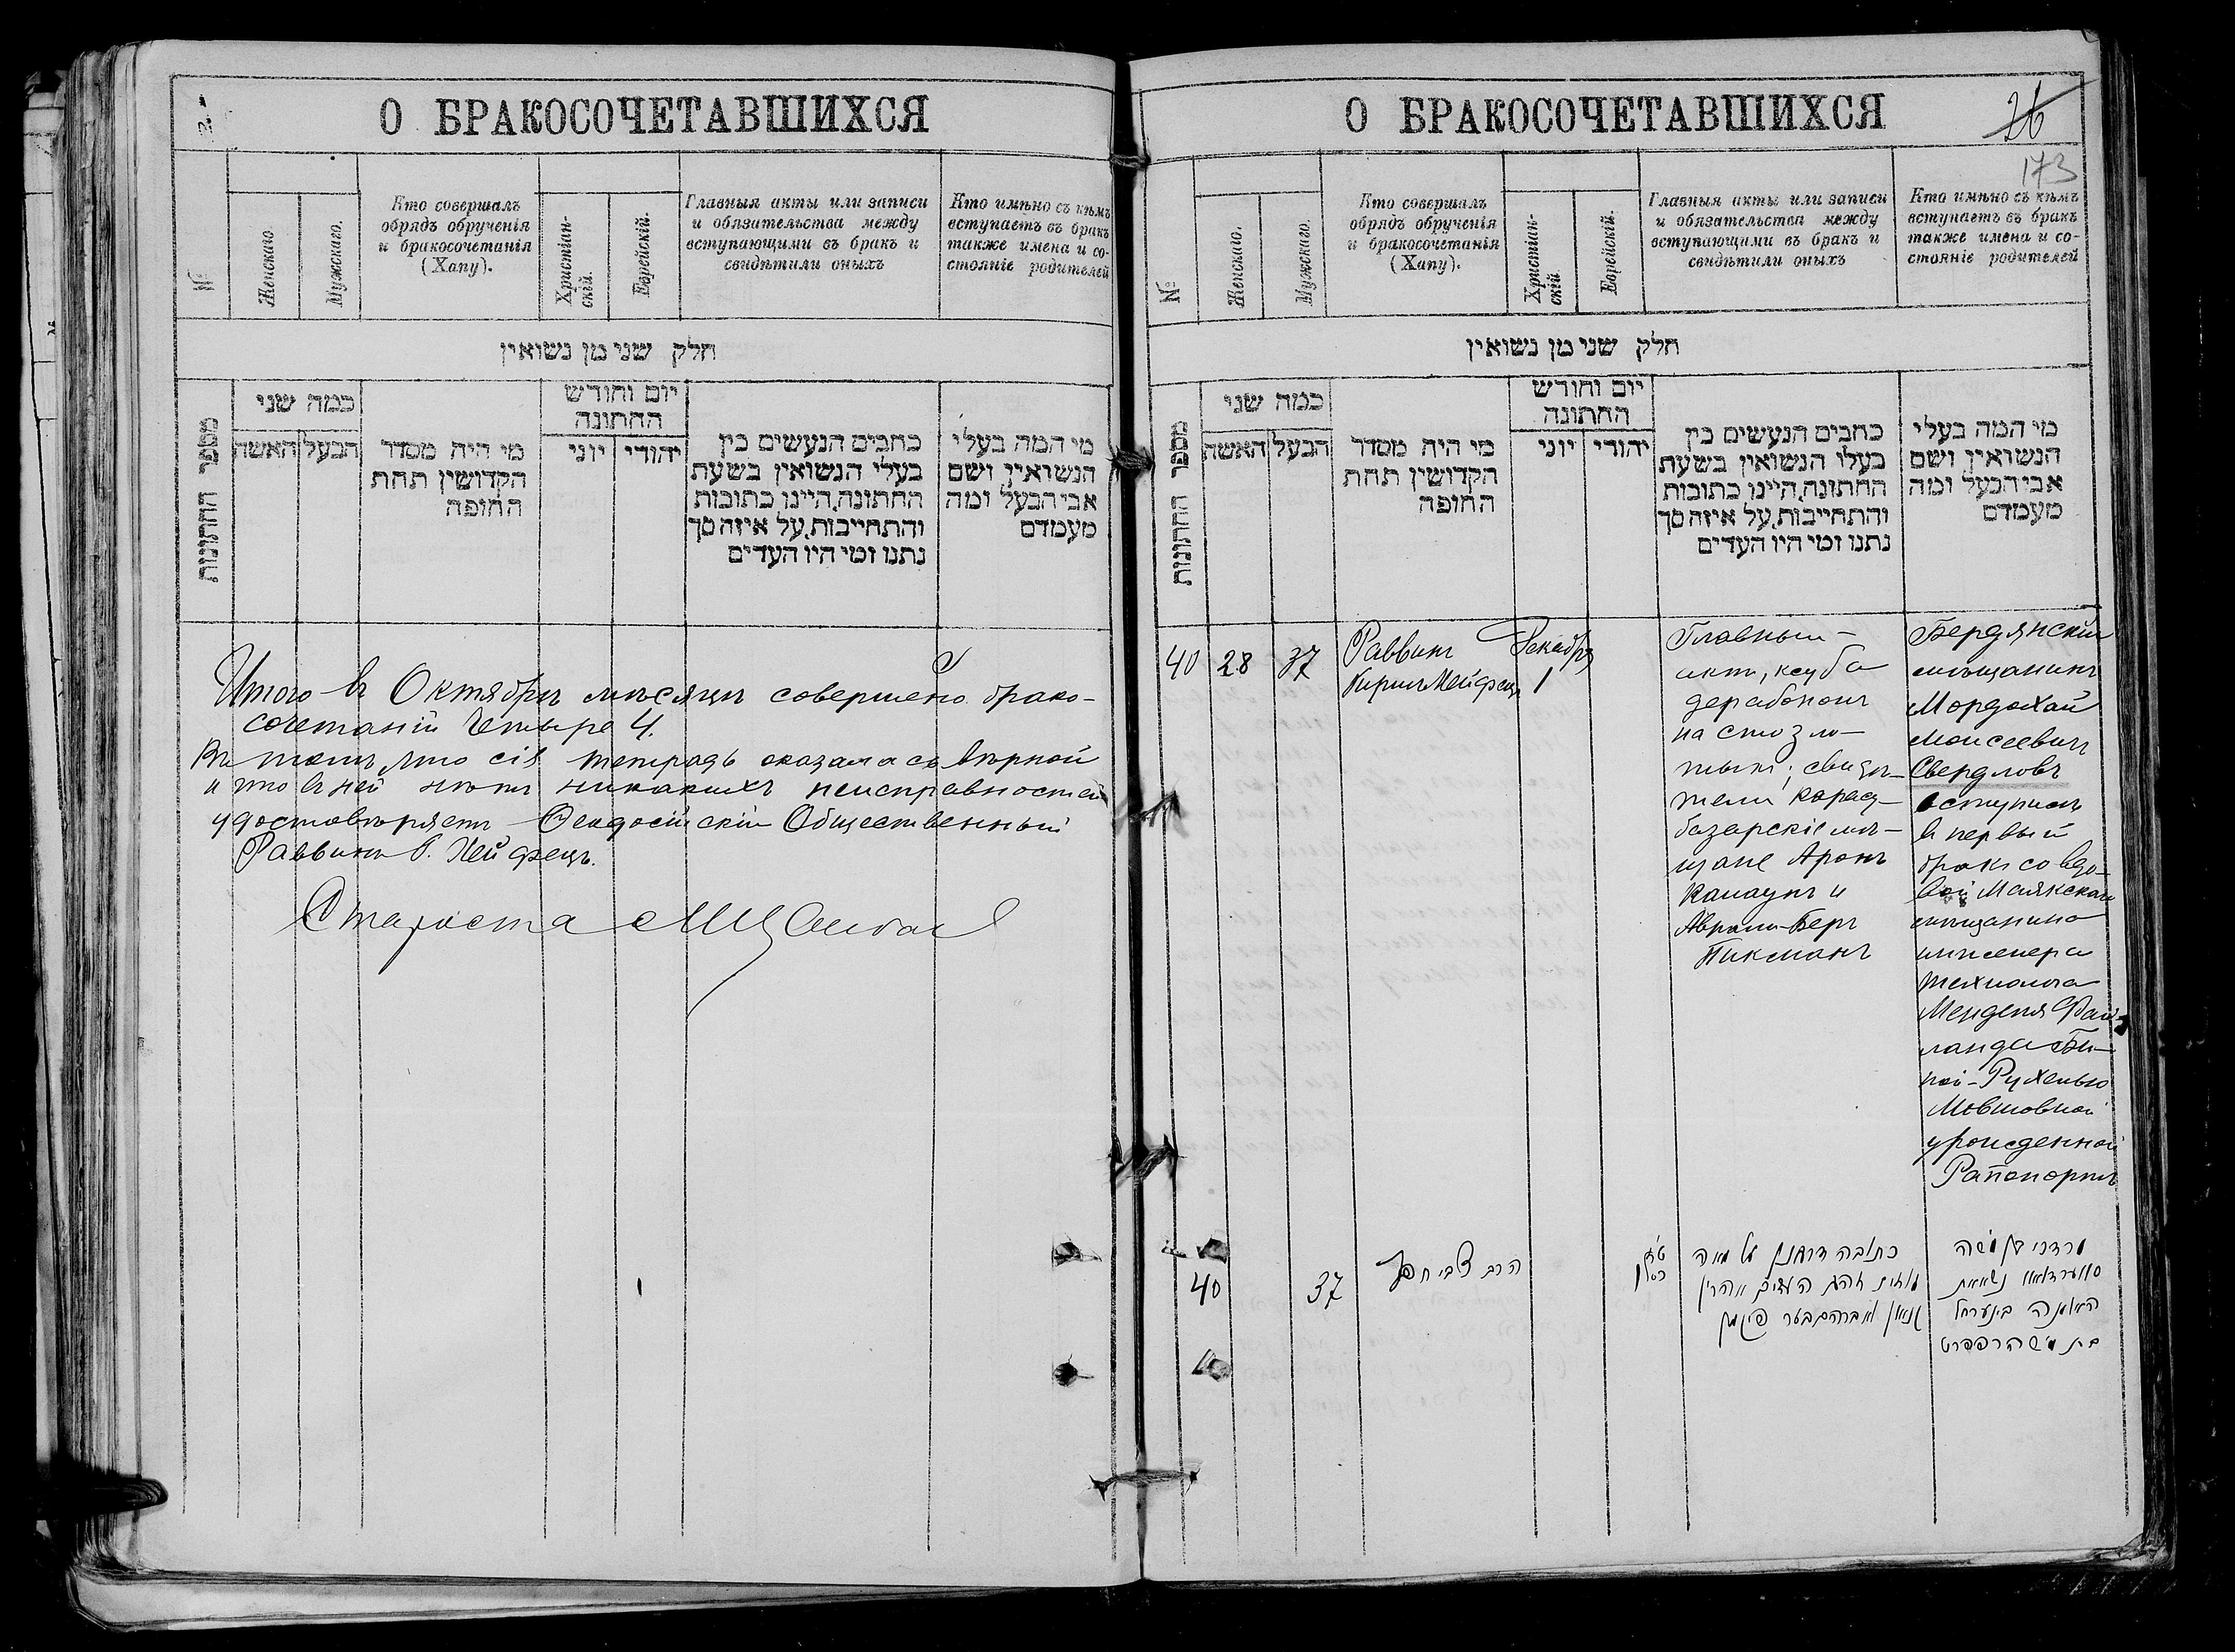 О БРАКОСОЧЕТАВШИХСЯ
№
Женскаго
Мужскаго.
Кто совершалъ
обрядъ обрученія
и бракосочетанія
(Хапу).
Христіан-
скій.
Еврейскій.
Главныя акты или записи
и обязательства между
вступающими въ бракъ и
свидѣтили оныхъ
Кто имѣно съ кѣмъ
вступаетъ въ бракъ
также имена и со-
стояніе родителей
חלק שני מן נשואין
מספר החתונות
כמה שני
האשה
הבעל
מי היה מסדר
הקדושין תחת
החופה
יום וחודש
החתונה
יוני
יהודי
כתבים הנעשים בין
בעלי הנשואין בשעת
החתונה, היינו כתובות
והתחייבות, על איזה סך
נתנו ומי היו העדים
מי המה בעלי
הנשואין ושם
אבי הבעל ומה
מעמדם
Итого въ Октябрѣ мѣсяцѣ совершено брако-
сочетаній четыре 4.
Въ томъ, что сія тетрадь оказалась вѣрной
и что въ ней нѣтъ никакихъ неисправностей
удостовѣряетъ Ѳеодосійскій Общественный
Раввинъ Б. Хейфецъ.
Староста
О БРАКОСОЧЕТАВШИХСЯ
26
173
№
Женскаго.
Мужскаго.
Кто совершалъ
обрядъ обрученія
и бракосочетанія
(Хапу).
Христіан-
скій
Еврейскій.
Главныя акты или записи
и обязательства между
вступающими въ бракъ и
свидѣтили оныхъ
Кто имѣно съ кѣмъ
вступаетъ въ бракъ
также имена и со-
стояніе родителей
חלק שני מן נשואין
מספר החתונות
כמה שני
האשה
הבעל
מי היה מסדר
הקדושין תחת
החופה
יום וחודש
החתונה
יוני
יהודי
כתבים הנעשים בין
בעלי הנשואין בשעת
החתונה, היינו כתובות
והתחייבות, על איזה סך
נתנו ומי היו העדים
מי המה בעלי
הנשואין ושם
אבי הבעל ומה
מעמדם
40
28
37
Раввинъ
Хейфецъ
Декабря
1
Главный
актъ, ксуба
дерабононъ
на сто зло-
тыхъ; свидѣ-
тели Карасу-
базарскіе мѣ-
щане Аронъ
и
Аврамъ-Беръ
Пикманъ
Бердянскій
мѣщанинъ
Мордохай
Моисеевичъ
Свердловъ
вступилъ
въ первый
бракъ со вдо-
вой Маякскаго
мѣщанина
инженера
технолога
Менделя Фай-
ланда Би-
ной-Рухелью
Мовшовной
урожденной
Рапопортъ
40
37
הרב צבי חפץ
כתובה דרבנן על מאה
מרדכי בן משה
סווערדלאוו נשא את
האלמנה בינע רחל
בת משה רפפרט